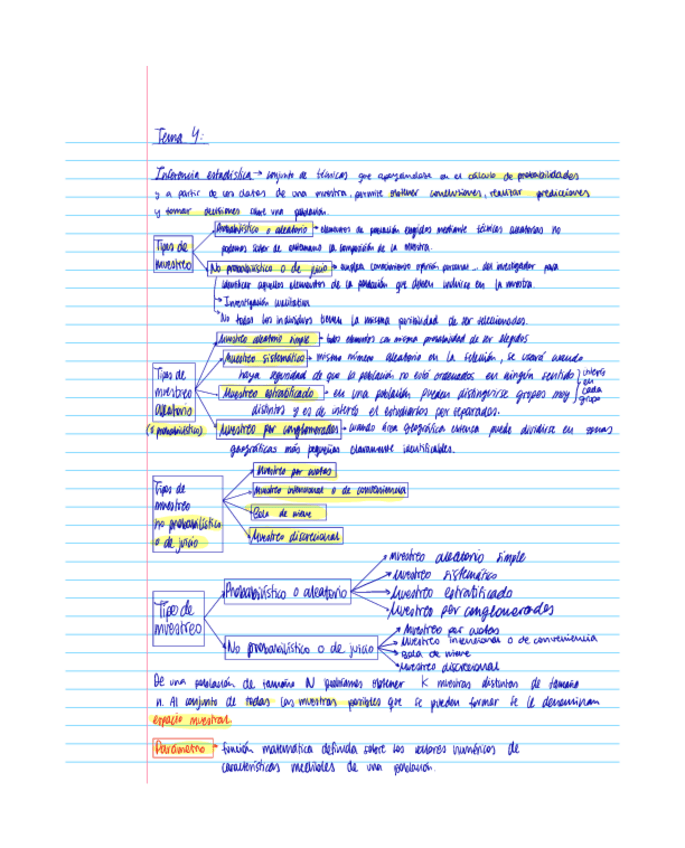 Tema 4:
Inferencia estadística → conjunto de técnicas que apoyándose en el cálculo de probabilidades
y a partir de los datos de una muestra, permite obtener conclusiones, realizar predicciones
y tomar decisiones sobre una población.
Tipos de muestreo
Probabilístico o aleatorio → elementos de población elegidos mediante técnicas aleatorias no
podemos saber de antemano la composición de la muestra.
No probabilístico o de juicio → emplea conocimiento opinión personal ... del investigador para
identificar aquellos elementos de la población que deben incluirse en la muestra.
→ Investigación cualitativa
→ No todos los individuos tienen la misma posibilidad de ser seleccionados.
Tipos de muestreo aleatorio (o probabilístico)
Muestreo aleatorio simple → todos elementos con misma probabilidad de ser elegidos
Muestreo sistemático → mismo número aleatorio en la selección, se usará cuando
haya seguridad de que la población no está ordenados en ningún sentido
Muestreo estratificado → en una población pueden distinguirse grupos muy
distintos y es de interés el estudiarlos por separados.
} interés en cada grupo
Muestreo por conglomerados → cuando área geográfica extensa puede dividirse en zonas
geográficas más pequeñas claramente identificables.
Tipos de muestreo no probabilístico o de juicio
Muestreo por cuotas
Muestreo intencional o de conveniencia
Bola de nieve
Muestreo discrecional
Tipo de muestreo
Probabilístico o aleatorio
→ muestreo aleatorio simple
→ Muestreo sistemático
→ Muestreo estratificado
→ Muestreo por conglomerados
No probabilístico o de juicio
→ Muestreo por cuotas
→ Muestreo intencional o de conveniencia
→ Bola de nieve
→ Muestreo discrecional
De una población de tamaño N podríamos obtener K muestras distintas de tamaño
n. Al conjunto de todas las muestras posibles que se pueden formar se le denominan
espacio muestral.
Parámetro → función matemática definida sobre los valores numéricos de
características medibles de una población.